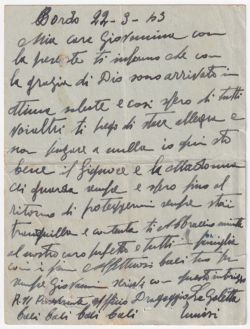 Bordo 22-3-43
Mia cara Giovannina con
la presente ti informo che con
la grazia di Dio sono arrivato in
ottima salute e cosi spero di tutti
voialtri ti prego di stare allegra e
non pensare a nulla io qui sto
bene il Signore e la Madonna
ci guarda sempre e spero fino al
ritorno di proteggermi sempre stai
tranquilla e contenta ti Abbraccio unita
al nostro caro e tutti i famiglia
con i più Affettuosi baci tuo per
sempre Giovanni
R.N. ufficio Dragaggio La Goletta
baci baci baci baci Tunisi